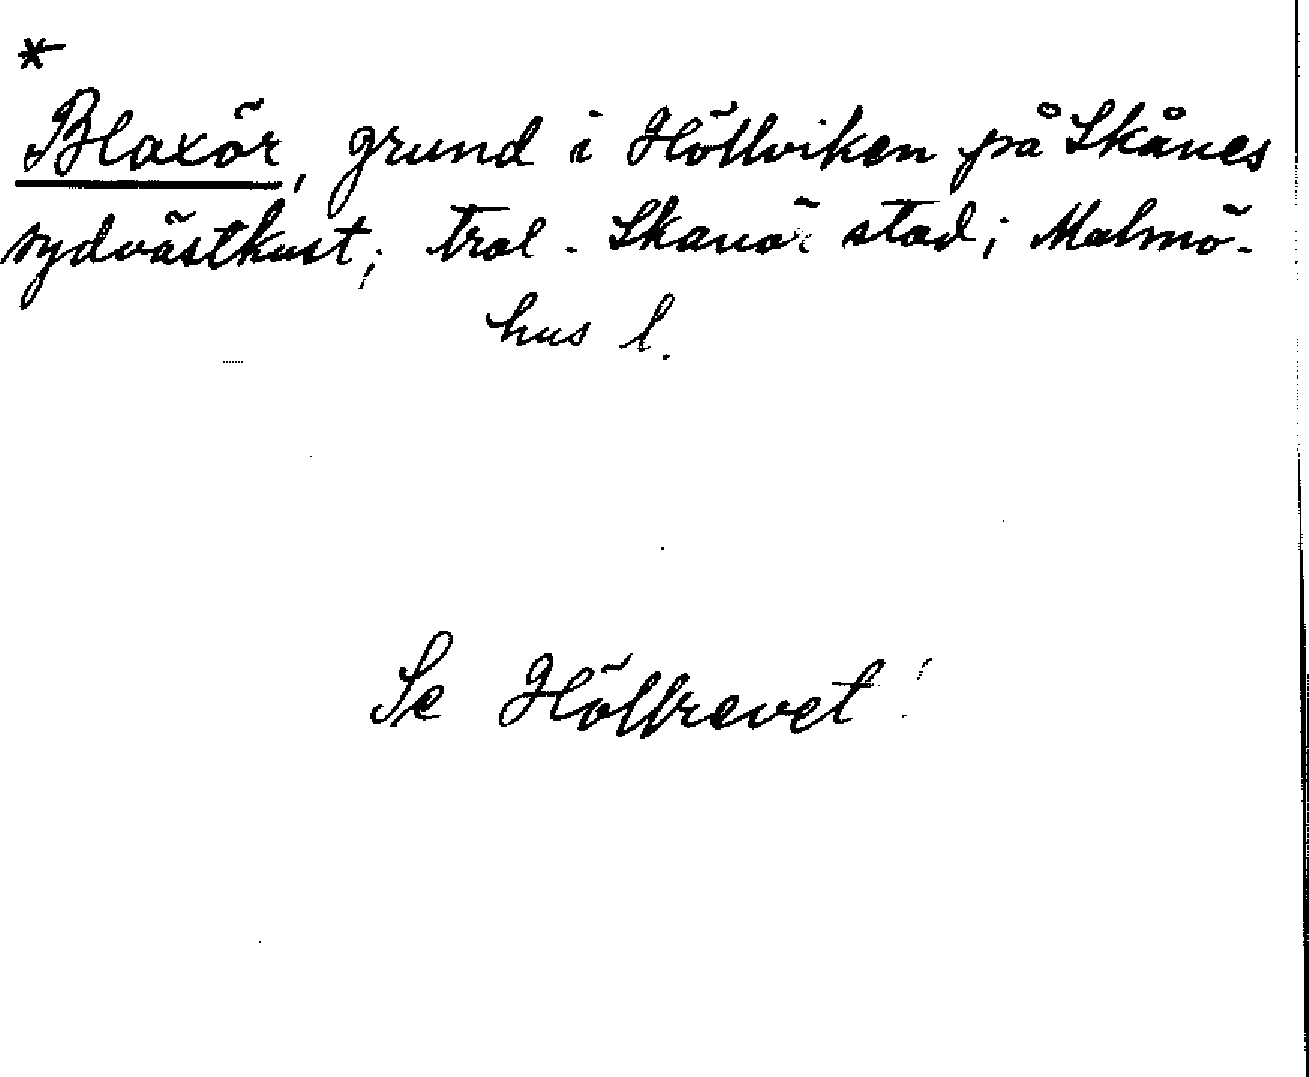 *
Blaxör, grund i Höllviken på Skånes
sydvästkust; trol. Skanör stad; Malmö-
hus l.
Se Höllrevet!